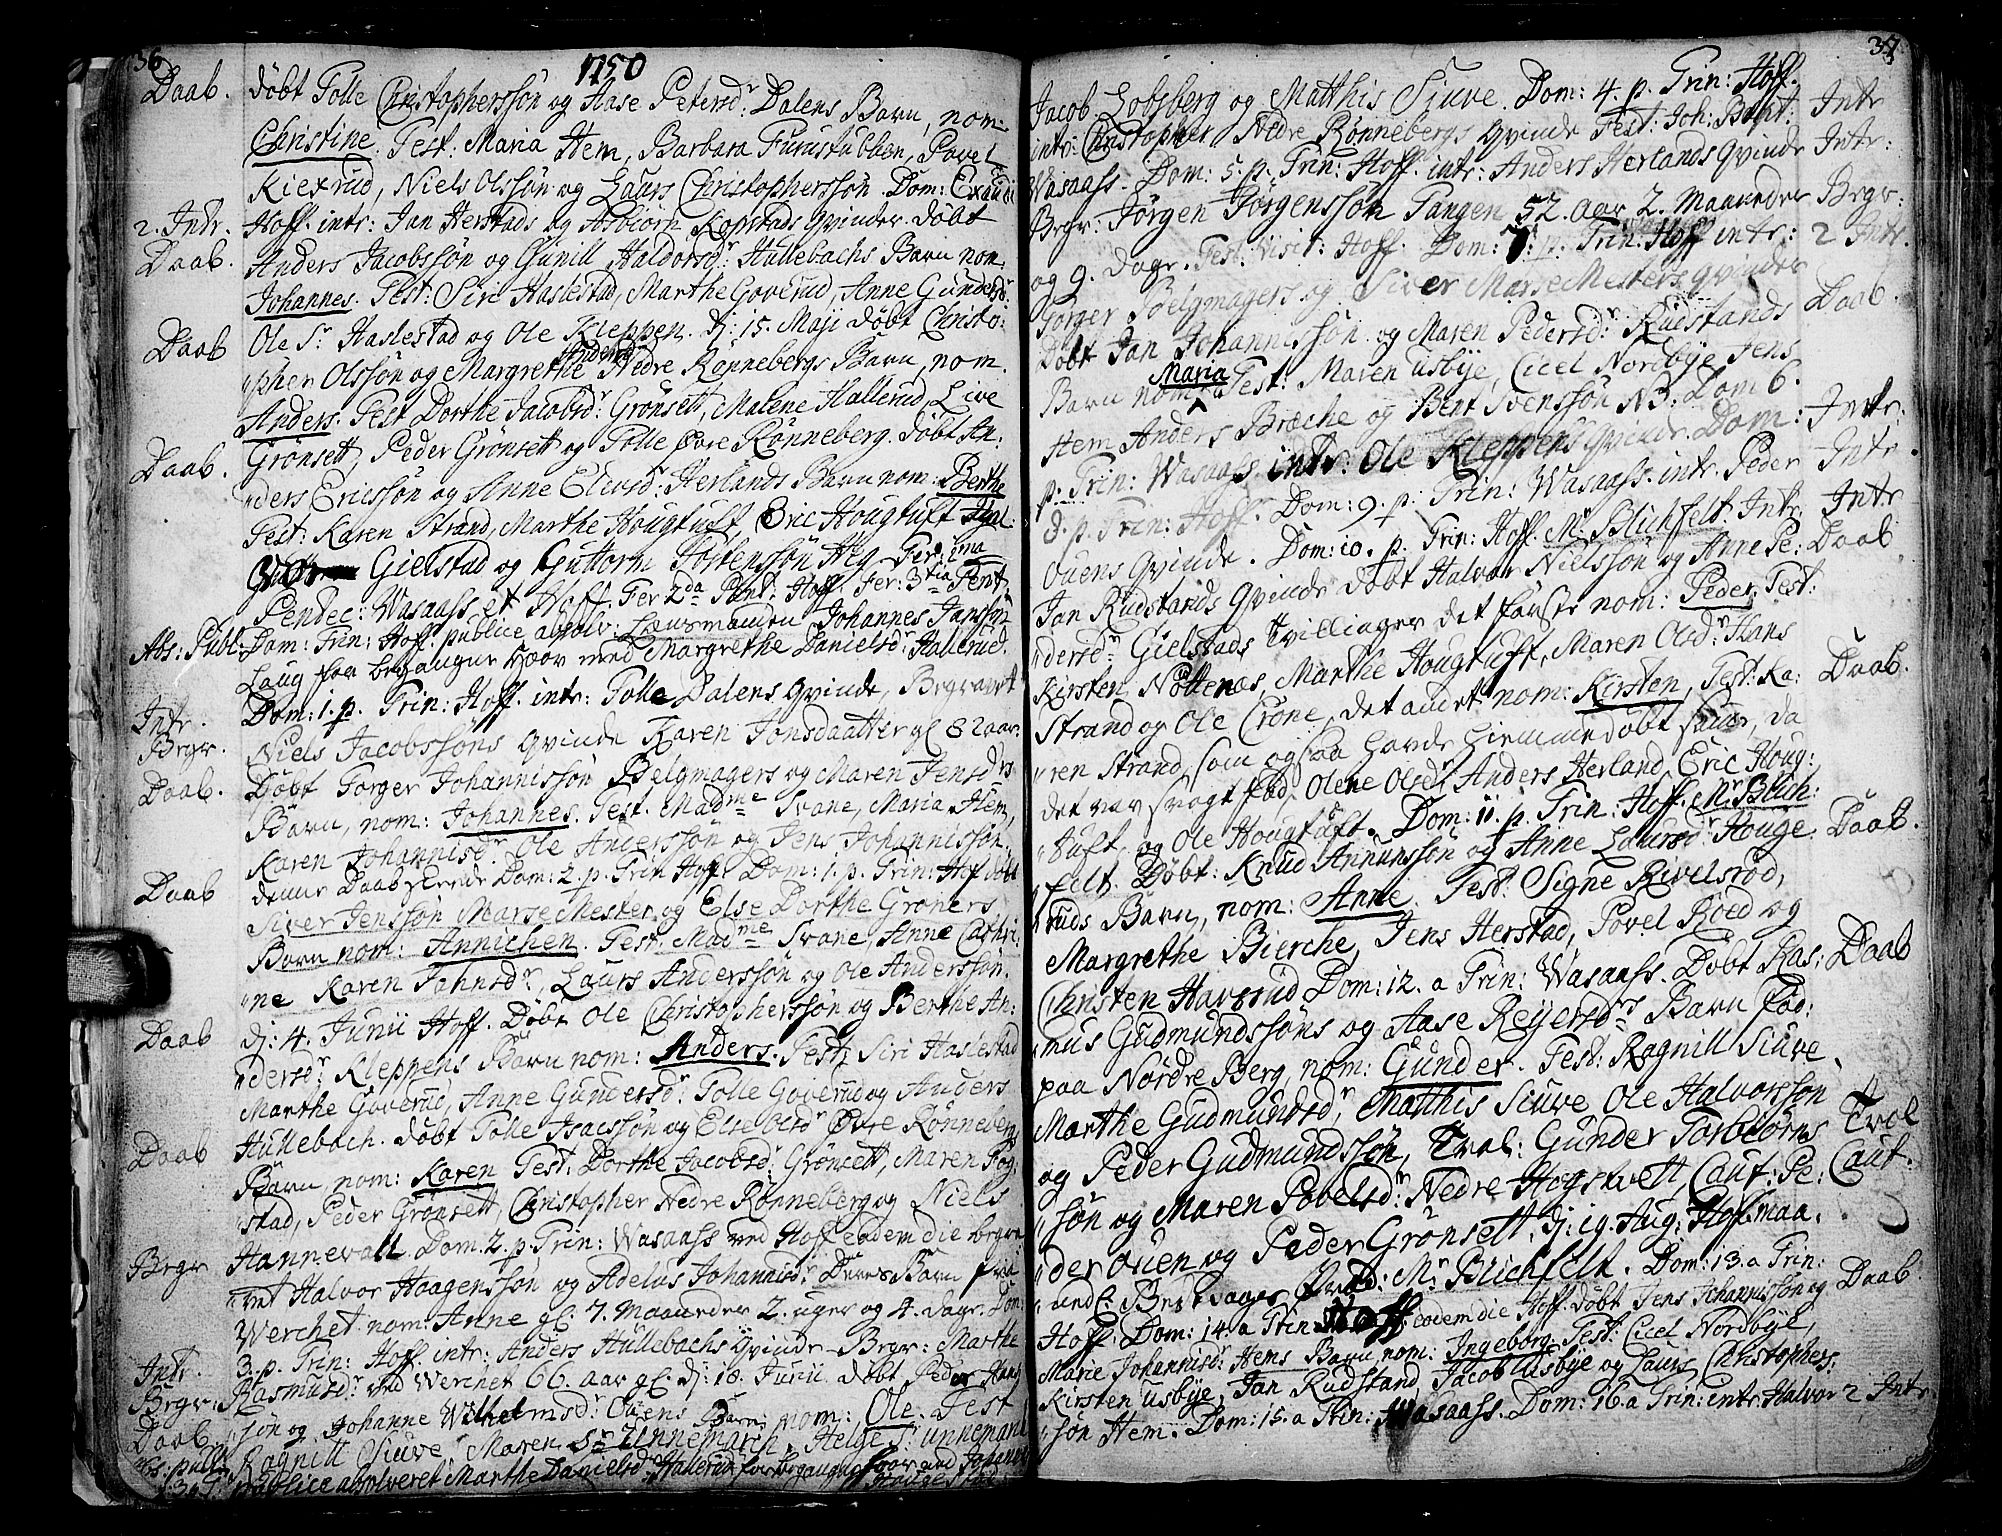 36
1750
Daab. døbt Tolle Christophersøn og Aase Petersdr Dalens Barn, nom
Christine. Test: Maria Hem, Barbara Furustubben, Povel
Kiexrud, Niels Olssøn og Laurs Christophersøn. Dom: Exaudi
2. Intr. Hoff. intr: Jan Herstads og Asbiorn Kopstads Qvinder. døbt
Daab. Anders Jacobssøn og Gunill Haldorsdr: Hullebachs Barn nom:
Johannes. Test: Siri Haslestad, Marthe Goverud, Anne Gundersdr
Daab Ole Sr Haslestad og Ole Kleppen. dj: 15. Maji døbt Christo:
pher Olssøn og Margrethe Anders Nedre Rønnebergs Barn, nom.
Anders. Test Dorthe Jacobsdr: Grønsett, Malene Hallerud, Live
Grønsett, Peder Grønsett og Tolle Øvre Rønneberg. døbt An:
Daab. ders Ericssøn og Anne Elivsdr: Herlands Barn nom: Berthe
Test: Karen Strand, Marthe Hougtuft, Eric Hougtuft
Gielstad og Guttorm Tostenssøn Heg. Fer: 1ma
Pendec: Wasaass et Hoff. Fer 2da Pent: Hoff. Fer: 3tia Pent:
Abs: Publ: Dom: Trin: Hoff. publice absolv: Lausmanden Johannes Jansen
Laug for begangne Hoor med Margrethe Danielsdr: Hallerud.
Intr. Dom: 1. p. Trin: Hoff. intr: Tolle Dalens Qvinde, Begravet
Brgr. Niels Jacobssøns Qvinde Karen Jonsdaatter gl 82 aar.
Daab. Døbt Torger Johannissøn Belgmagers og Maren Jensdrs
Barn, nom: Johannes. Test. Madme Svane, Maria Hem,
Karen Johannisdr. Ole Anderssøn og Jens Johannissøn.
denne Daab skeede Dom: 2. p. Trin Hoff. Dom: 1. p. Trin: Hof døbt
Daab Siver Jenssøn Marse Mester og Else Dorthe Groners
Barn nom: Annichen. Test. Madme Svane, Anne Cathri
ne Karen Jahnsdr, Laurs Anderssøn og Ole Anderssøn.
dj: 4. Junii Hoff. Døbt Ole Christopherssøn og Berthe An:
Daab dersdr: Kleppens Barn nom: Anders. Test: Siri Haslestad
Marthe Goverud, Anne Gundersdr: Tolle Goverud og Anders
Hullebach. døbt Tolle Isacssøn og Else Olsdr Øvre Rønnebergs
Daab Barn, nom: Karen Test. Dorthe Jacobsdr: Grønsett, Maren Fog:
stad, Peder Grønsett, Christopher Nedre Rønneberg og Niels
Hannevall. Dom: 2. p. Trin: Wasaass ved Hoff eodem die begra
Brgr vet Halvor Haagenssøn og Adelus Johannisdr: Deres Barn fra
Werchet nom: Anne gl. 7. Maaneder 2. uger og 4. dage. Dom:
Intr. 3. p. Trin: Hoff. intr: Anders Hullebachs Qvinde. Brgr: Marthe
Brgr: Rasmusdr: ved Werchet 66. aar gl. dj: 18. Junii. døbt Peder Hans
Daab søn og Johanne Wilhelmsdr: Ouens Barn nom: Ole. Test
Ragnill Siuve Maren Sr Unnemarch, Helge Sr: Unnemarch
Publice absolveret Marthe Danielsdr: Hallerud for begangne Hoor med Johannes
37
Jacob Lobsberg og Matthis Siuve. Dom: 4. p. Trin: Hoff.
intr: Christopher Nedre Rønnebergs Qvinde Fest: Joh: Bapt: Intr
Wasaass. Dom: 5. p. Trin: Hoff. intr: Anders Herlands Qvinde Intr:
Brgr: Jørgen Jørgenssøn Tangen 52. aar 2. Maaneder Brgr:
og 9. dage. Fest: Visit: Hoff. Dom: 7: p. Trin: Hoff intr: 2 Intr.
Torger Belgmagers og Siver Marse Mesters Qvinder
Døbt Jan Johannissøn og Maren Pedersdr Rudstands Daab.
Barn nom: Maria Test: Maren Usbye, Cicel Nordbye, Jens
Hem Anders Bræche og Bent Svenssøn NB: Dom 6.
p. Trin: Wasaass intr: Ole Kleppens Qvinde. Dom: Intr.
8. p. Trin: Hoff. Dom: 9. p. Trin: Wasaass. intr. Peder Intr.
Ouens Qvinde. Dom: 10. p. Trin: Hoff. Mr Blichfelt. Intr. Intr
Jan Rudstands Qvinde døbt Halvor Nielssøn og Anne Pe: Daab
dersdr Gielstads tvillinger det første nom: Peder. Test:
Kirsten Nøttenæs, Marthe Hougtuft, Maren Olsdr Hans
Strand og Ole Crone, det andet nom: Kirsten, Test: Ka: Daab.
ren Strand, som ogsaa hafde hiemmedøbt samme, da
det var svagt fød, Olene Olsdr Anders Herland, Eric Houg:
tuft og Ole Hougtuft. Dom: 11. p. Trin: Hoff. Mr Blich:
felt. Døbt: Knud Anunssøn og Anne Laursdr Houge Daab.
ruds Barn, nom: Anne. Test: Signe Rivelsrød,
Margrethe Bierche, Jens Herstad, Povel Roed og
Christen Havsrud Dom: 12. a Trin: Wasaass. Døbt Ras: Daab
mus Gudmundssøns og Aase Reyersdrs Barn fød:
paa Nordre Berg, nom: Gunder. Test: Ragnill Siuve.
Marthe Gudmundsdr, Matthis Siuve Ole Halvorssøn
og Peder Gudmundssøn, Trol: Gunder Torbiørns Trol
søn og Maren Povelsdr: Nedre Hogskvett, Caut: Pe: Caut.
der Ouen og Peder Grønsett, dj: 19. Aug: Hoff maa.
Mr Blichfelt. Dom: 13. a Trin:
Hoff. Dom: 14. a Trin Hoff. eodem die Hoff. døbt Jens Johannissøn og Daab.
Marie Johannisdr: Hems Barn nom: Ingeborg. Test: Cicel Nordbye,
Kirsten Usbye, Jan Rudstand, Jacob Usbye og Laurs Christophers:
søn Hem. Dom: 15. a Trin: Wasaass. Dom: 16. a Trin: intr. Halvor 2 Intr.